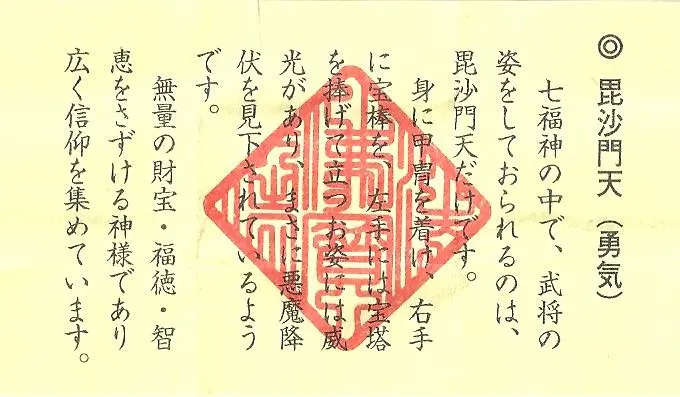 ◎ 毘沙門天（勇気）
七福神の中で、武将の
姿をしておられるのは、
毘沙門天だけです。
身に甲冑を着け、右手
に宝棒を、左手には宝塔
を捧げて立つお姿には威
光があり、まさに悪魔降
伏を見下されているよう
です。
無量の財宝・福徳・智
恵をさずける神様であり
広く信仰を集めています。